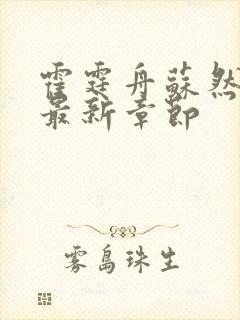 霍霆舟蘇然
最新章節
雾島珠生